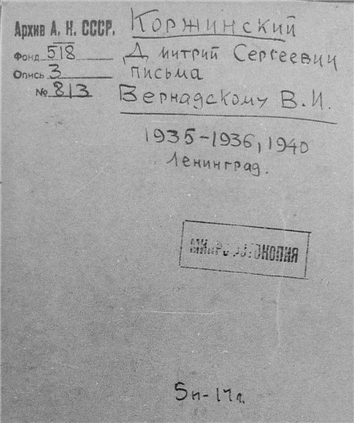 Архив А. Н. СССР.
Фонд 518
Опись 3
№ 813
Коржинский
Дмитрий Сергеевич
письма
Вернадскому В.И.
1935-1936, 1940
Ленинград.
МИКРОФОТОКОПИЯ
5п-17л.